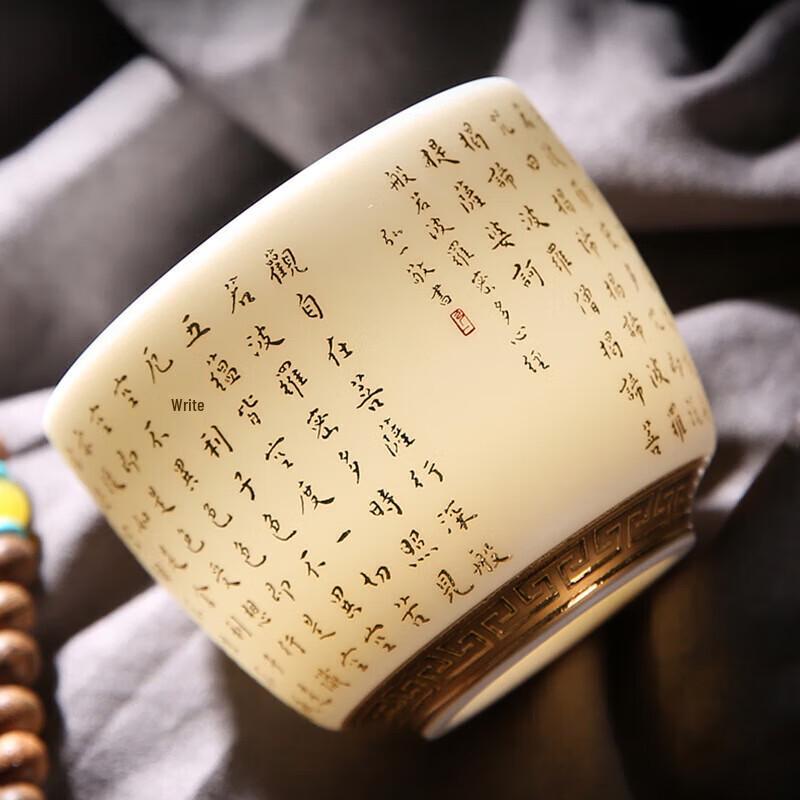 呪曰揭諦揭諦波羅
揭諦波羅僧揭諦菩
提薩婆訶
般若波羅密多心經
弘一敬書
觀自在菩薩行深般
若波羅密多時照見
五蘊皆空度一切苦
厄利子色不異空
空不異色色即是空
空即是色受想行識
Write